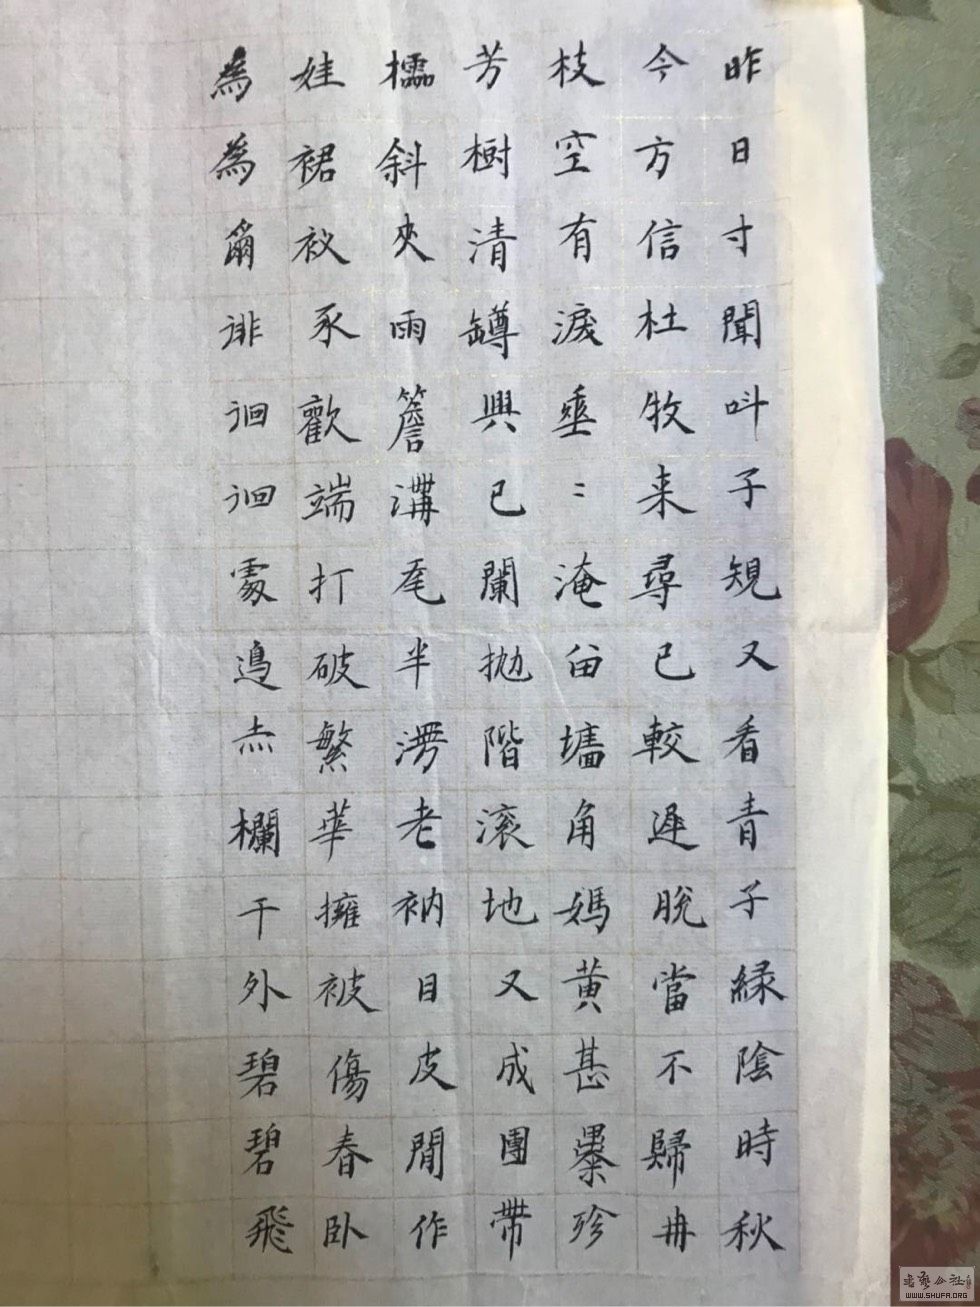 昨日寸聞叫子規又看青子緑陰時秋
今方信杜牧来尋已較遲脱當不歸冉
枝空有淚垂〻淹留墻角媽黄甚墨珍
芳樹清罇興已闌拋階滚地又成團帶
檽斜夾雨簷溝尾半澇老衲目皮閒作
娃裙衩承歡端打破繁華擁被傷春卧
為為爾徘徊徊處邊亦欄干外碧碧飛
書藝公社
WWW.SHUFA.ORG